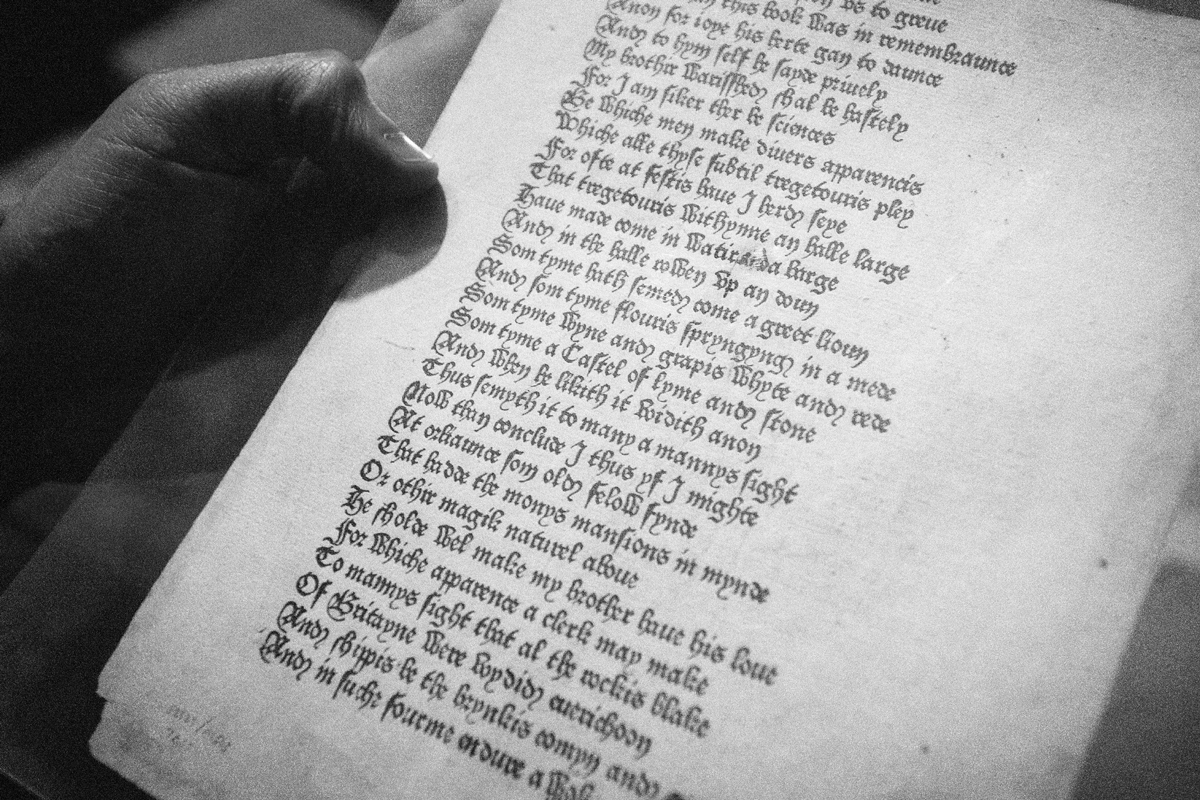 vs to greue
this book was in remembraunce
Anon for ioye his herte gan to daunce
Andy to hym self he sayde priuely
My brothir warisshedy shal be hastely
For I am siker ther be sciences
Be whiche men make diuers apparencis
Whiche alle thyse subtil tregetouris pley
For ofte at festis haue I herdy seye
That tregetouris withynne an halle large
Haue made come in watir a barge
Andy in the halle rowen vp an doun
Som tyme hath semedy come a greet lioun
Andy som tyme flouris spryngyngy in a mede
Som tyme wyne andy grapis whyte andy rede
Som tyme a Castel of lyme andy stone
Andy when he likith it voidith anon
Thus semyth it to many a mannys sight
Now than conclude I thus yf I mighte
At orliaunce som oldy felow fynde
That hadde the monys mansions in mynde
Or othir magik naturel aboue
He sholde wel make my brother haue his loue
For whiche apparence a clerk may make
To mannys sight that al the rockis blake
Of Britayne were voydidy euerichoon
Andy shippis be the brynkis comyn andy
Andy in suche fourme endure a wok